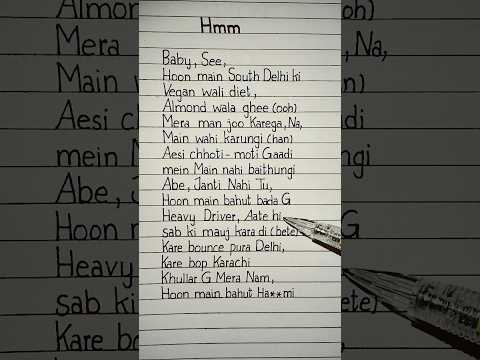 Hmm
Baby, See,
Hoon main South Delhi ki
Vegan wali diet,
Almond wala ghee (ooh)
Mera man joo Karega, Na,
Main wahi karungi (han)
Aesi chhoti-moti Gaadi
mein Main nahi baithungi
Abe, Janti Nahi Tu,
Hoon main bahut bada G
Heavy Driver, Aate hi
sab ki mauj kara di (bete)
Kare bounce pura Delhi,
Kare bop Karachi
Khullar G Mera Nam,
Hoon main bahut Ha**mi